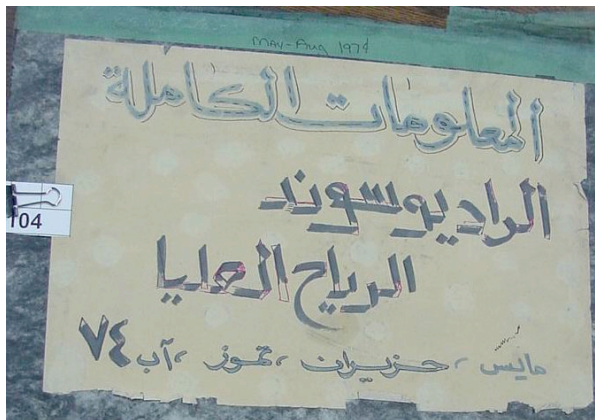 MAY-Aug 1974
المعلومات الكاملة
الراديوسوند
الرياح العليا
مايس، حزيران، تموز، آب ٧٤
104